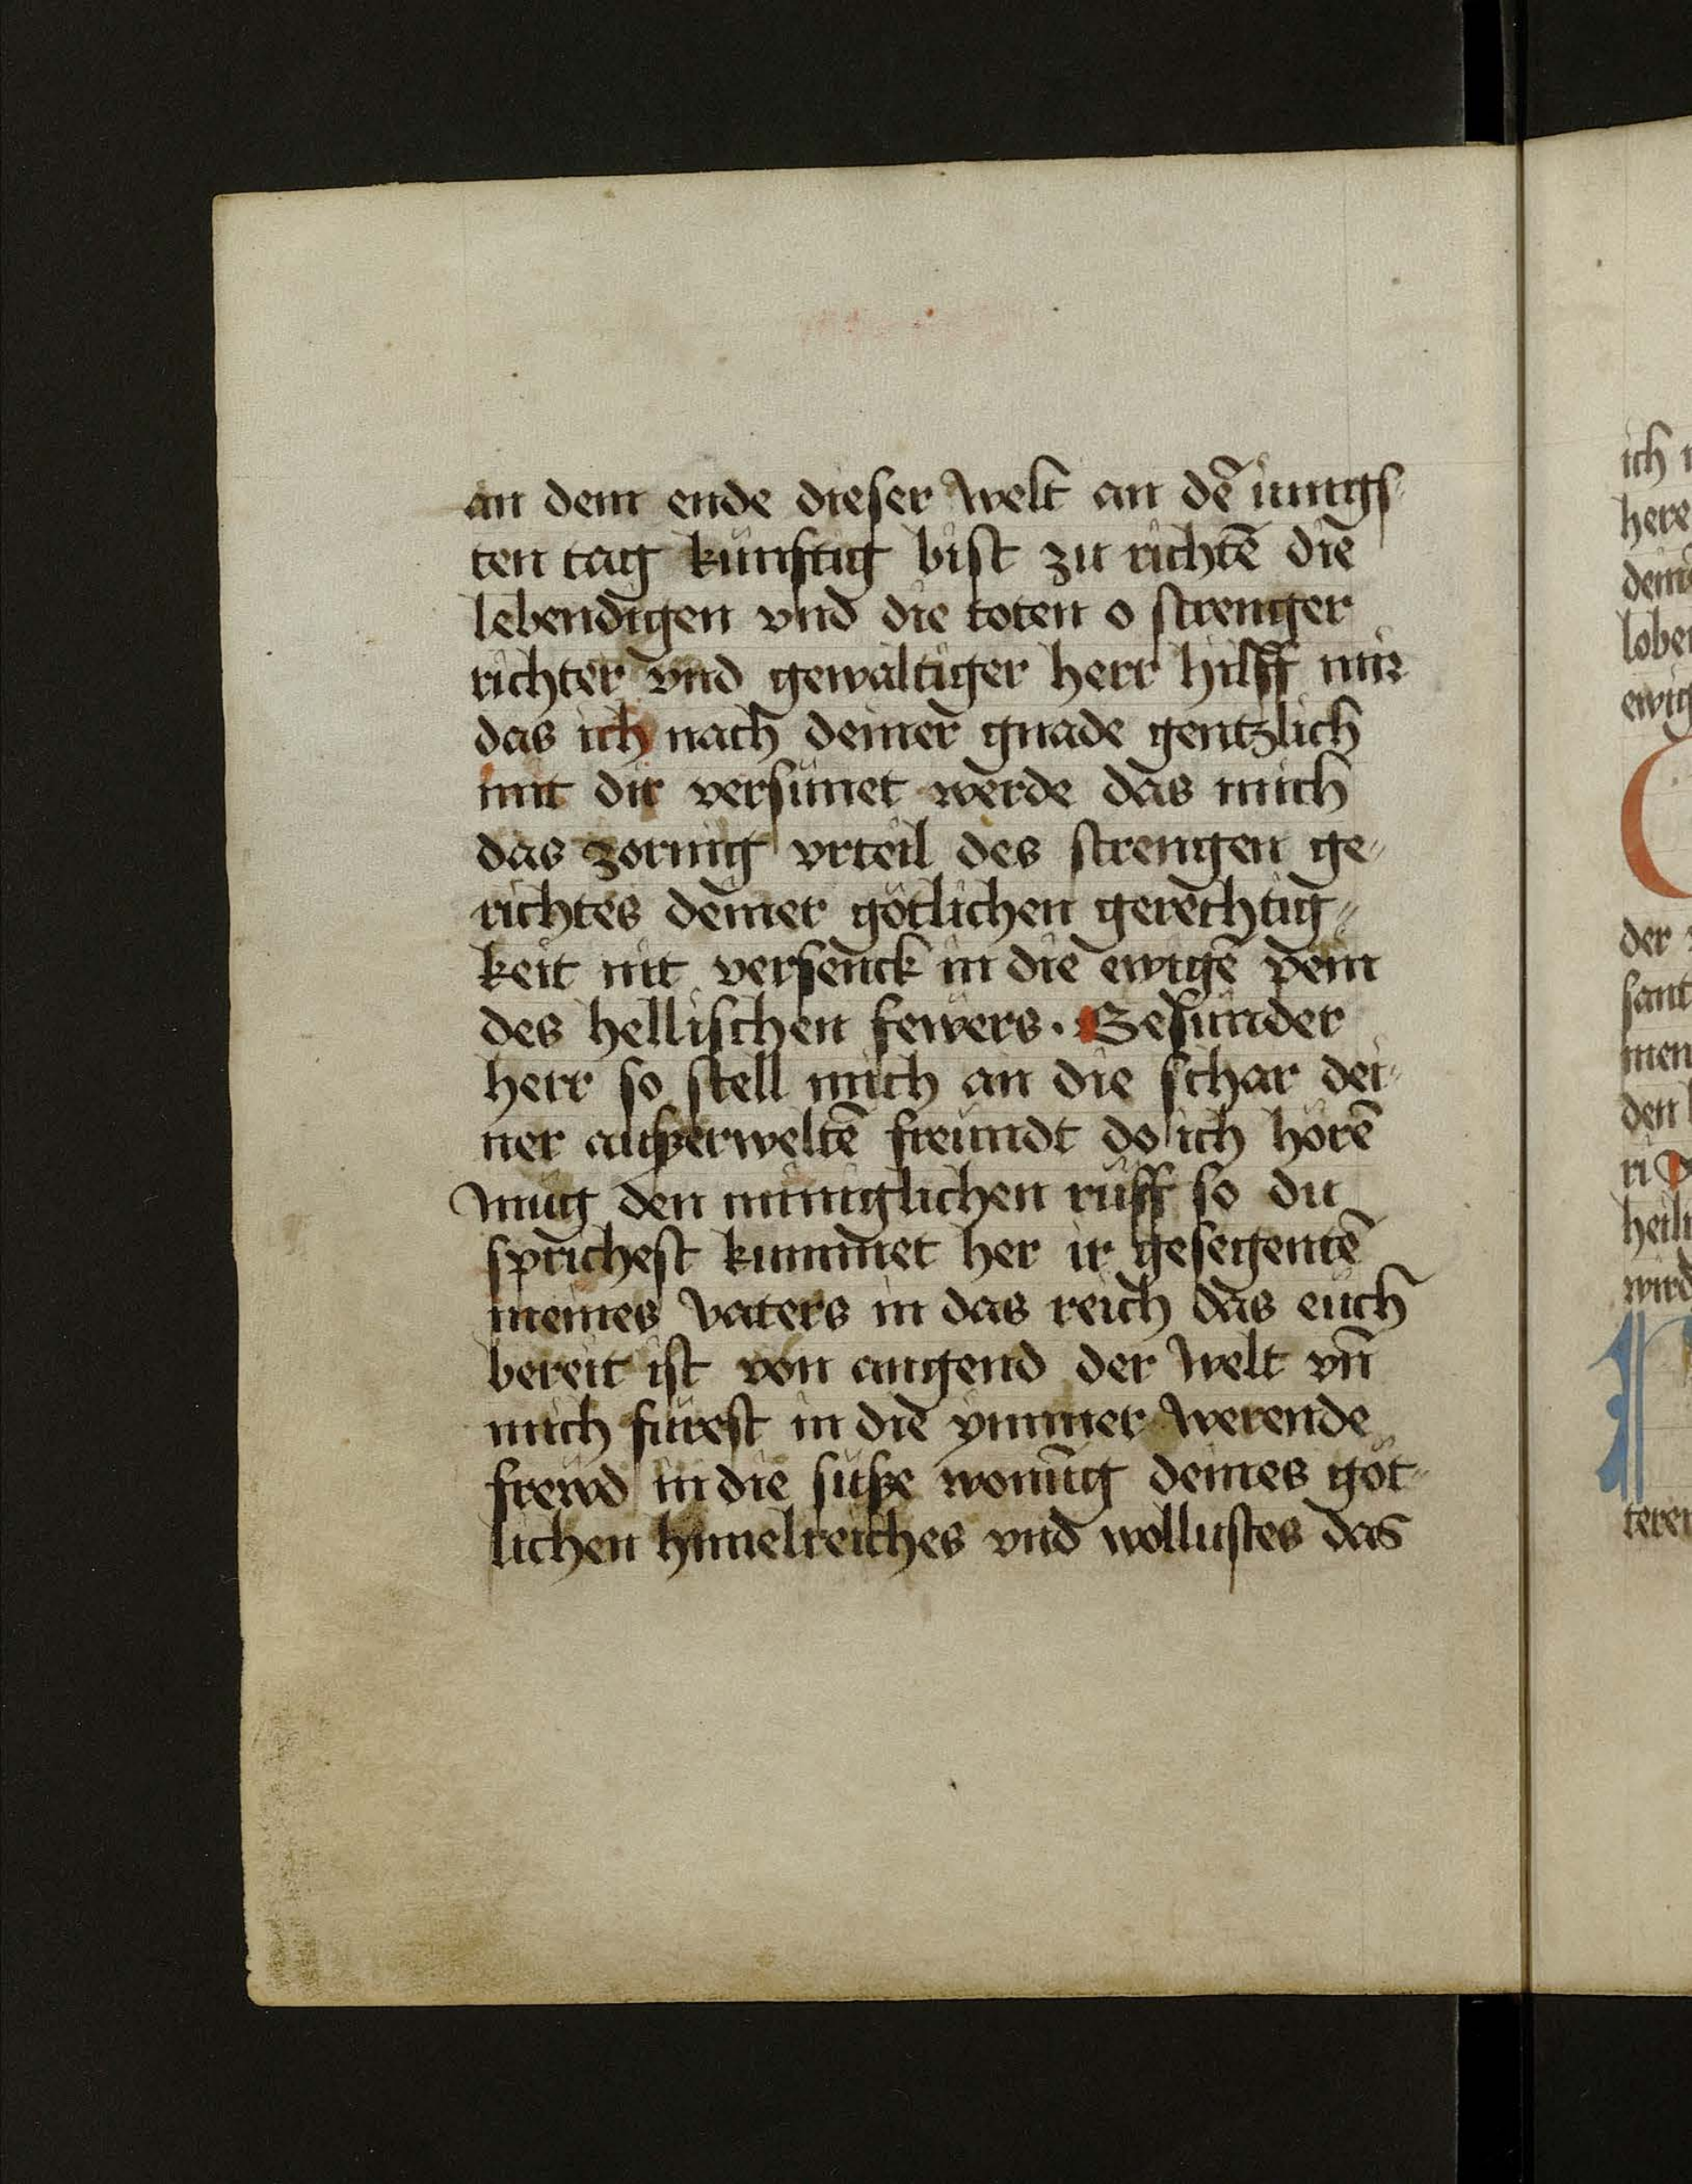 an dem ende dieser welt an dē iungs
ten tag künftig bist zu richtē die
lebendigen vnd die toten o strenger
richter vnd gewaltiger herr hilff mir
das ich nach deiner gnade gentzlich
mit dir versünet werde das mich
das zornig vrteil des strengen ge
richtes deiner götlichen gerechtig
keit nit versenck in die ewigē pein
des hellischen fewers. Besunder
herr so stell mich an die schar dei
ner außerweltē freündt do ich hörē
müg den miniglichen rüff so du
sprichest kummet her ir gesegentē
meines vaters in das reich das euch
bereit ist von angend der welt vn̄
mich fürest in die ymmer werende
frewd in die süße wonūg deines göt
lichen himelreiches vnd wollustes das
ich
here
lober
ewig
der
sant
men
den
ri
heili
wird